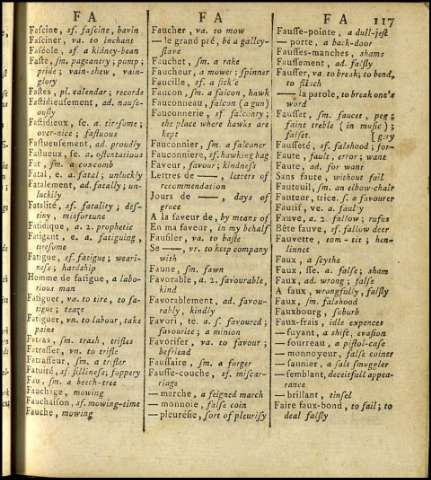 F A
Fascine, sf. fascine, bavin
Fasciner, va. to inchant
Faséole, sf. a kidney-bean
Faste, sm. pageantry; pomp;
pride; vain-shew, vain-
glory
Fastes, pl. calendar; records
Fastidieusement, ad. nause-
ously
Fastidieux, se a. tiresome;
over-nice; fastuous
Fastueusement, ad. proudly
Fastueux, se. a. ostentatious
Fat, sm. a coxcomb
Fatal, e. a. fatal; unlucky
Fatalement, ad. fatally; un-
luckily
Fatalité, sf. fatality; des-
tiny, misfortune
Fatidique, a. 2. prophetic
Fatigant, e. a. fatiguing,
tiresome
Fatigue, sf. fatigue; weari-
ness; hardship
Homme de fatigue, a labo-
rious man
Fatiguer, va. to tire, to fa-
tigue; teaze
Fatiguer, vn. to labour, take
pains
Fatras, sm. trash, trifles
Fatrasser, vn. to trifle
Fatrasseur, sm. a trifler
Fatuité, sf. silliness; foppery
Fau, sm. a beech-tree
Fauchage, mowing
Fauchaison, sf. mowing-time
Fauche, mowing
F A
Faucher, va. to mow
— le grand pré, be a galley-
slave
Fauchet, sm. a rake
Faucheur, a mower; spinner
Faucille, sf. a sickle
Faucon, sm. a falcon, hawk
Fauconneau, falcon (a gun)
Fauconnerie, sf falconry;
the place where hawks are
kept
Fauconnier, sm. a falconer
Fauconniere, sf. hawking bag
Faveur, favour; kindness
Lettres de —, letters of
recommendation
Jours de —, days of
grace
A la faveur de, by means of
En ma faveur, in my behalf
Faufiler, va. to baste
Se —, vr. to keep company
with
Faune, sm. fawn
Favorable, a. 2. favourable,
kind
Favorablement, ad. favou-
rably, kindly
Favori, te. a. s. favoured;
favourite; a minion
Favoriser, va. to favour;
befriend
Faussaire, sm. a forger
Fausse-couche, sf. miscar-
riage
— marche, a feigned march
— monnoie, false coin
— pleurésie, sort of pleurisy
F A 117
Fausse-pointe, a dull-jest
— porte, a back-door
Fausses-manches, shams
Faussement, ad. falsly
Fausser, va. to break; to bend,
to
— la parole, to break one's
word
Fausset, sm. faucet, peg;
faint treble (in music);
falset. [gery
Fausseté, sf. falshood; for-
Faute, fault; error; want
Faute, ad. for want
Sans faute, without fail
Fauteuil, sm. an elbow-chair
Fauteur, trice. s. a favourer
Fautif, ve. a. faul y
Fauve, a. 2. fallow; rufus
Bête fauve, sf. fallow deer
Fauvette, tom-tit; hen-
linnet
Faux, a scythe
Faux, sse. a. false; sham
Faux, ad. wrong; false
A faux, wrongfully, falsly
Faux, sm. falshood
Fauxbourg, suburb
Faux-frais, idle expences
— fuyant, a shift, evasion
— fourreau, a pistol-case
— monnoyeur, false coiner
— saunier, a salt smuggler
— semblant, deceitful appea-
rance
— brillant, tinsel
Faire faux-bond, to fail; to
deal falsly